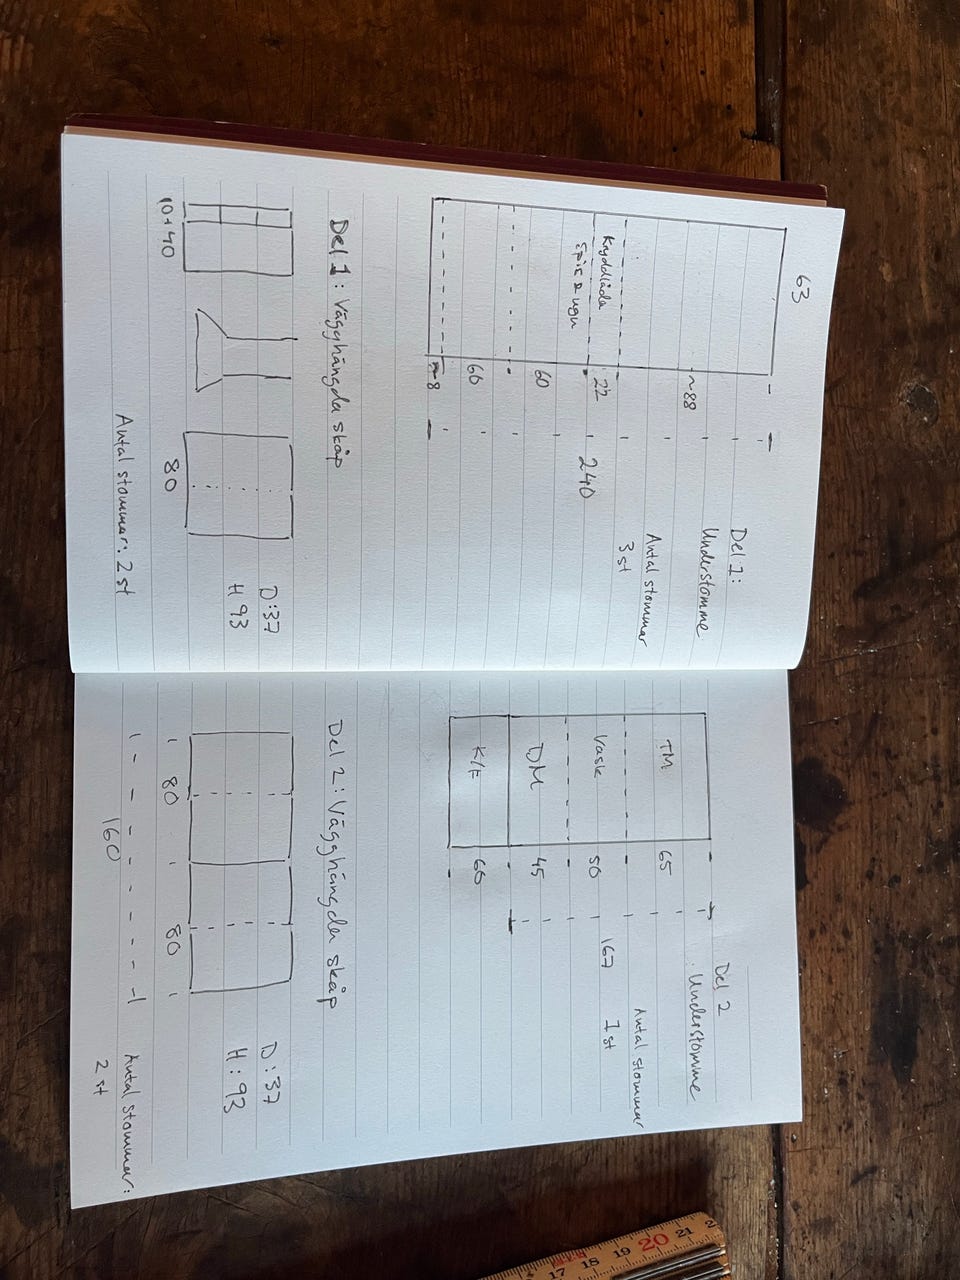 Del 1:
Understomme
Antal stommar
3 st
63
~88
22
Kryddlåda
Spis & ugn
60
60
~8
240
Del 1: Vägghängda skåp
10+40
80
D:37
H 93
Antal stommar: 2 st
Del 2
Understomme
Antal stommar
1 st
TM
Vask
DM
K/F
65
50
45
60
167
Del 2: Vägghängda skåp
80
80
160
D:37
H:93
Antal stommar:
2 st
17 18 19 20 21 2